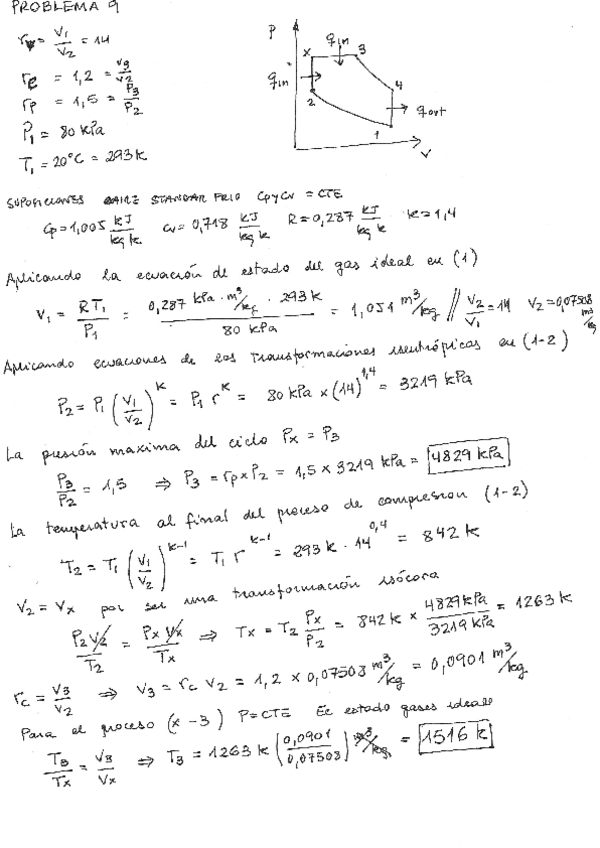 PROBLEMA 9
rv = V1/V2 = 14
rc = 1,2 = V3/V2
rp = 1,5 = P3/P2
P1 = 80 kPa
T1 = 20°C = 293 K
P
x
qin
3
qin
2
4
qout
1
V
SUPOSICIONES AIRE STANDAR FRIO Cp y Cv = CTE
Cp = 1,005 kJ/kg k Cv = 0,718 kJ/kg k R = 0,287 kJ/kg k k = 1,4
Aplicando la ecuación de estado del gas ideal en (1)
V1 = RT1/P1 = 0,287 kPa·m³/kg · 293 k / 80 kPa = 1,051 m³/kg // V2/V1 = 14 V2 = 0,07508 m³/kg
Aplicando ecuaciones de las transformaciones isentrópicas en (1-2)
P2 = P1 (V1/V2)^k = P1 r^k = 80 kPa × (14)^1,4 = 3219 kPa
La presión maxima del ciclo Px = P3
P3/P2 = 1,5 ⇒ P3 = rp × P2 = 1,5 × 3219 kPa = 4829 kPa
La temperatura al final del proceso de compresion (1-2)
T2 = T1 (V1/V2)^k-1 = T1 r^k-1 = 293 k · 14^0,4 = 842 k
V2 = Vx por ser una transformación isócora
P2 V2/T2 = Px Vx/Tx ⇒ Tx = T2 Px/P2 = 842 k × 4829 kPa/3219 kPa = 1263 k
rc = V3/V2 ⇒ V3 = rc V2 = 1,2 × 0,07503 m³/kg = 0,0901 m³/kg
Para el proceso (x-3) P = CTE Ec estado gases ideales
T3/Tx = V3/Vx ⇒ T3 = 1263 k (0,0901/0,07508) m³/kg = 1516 k